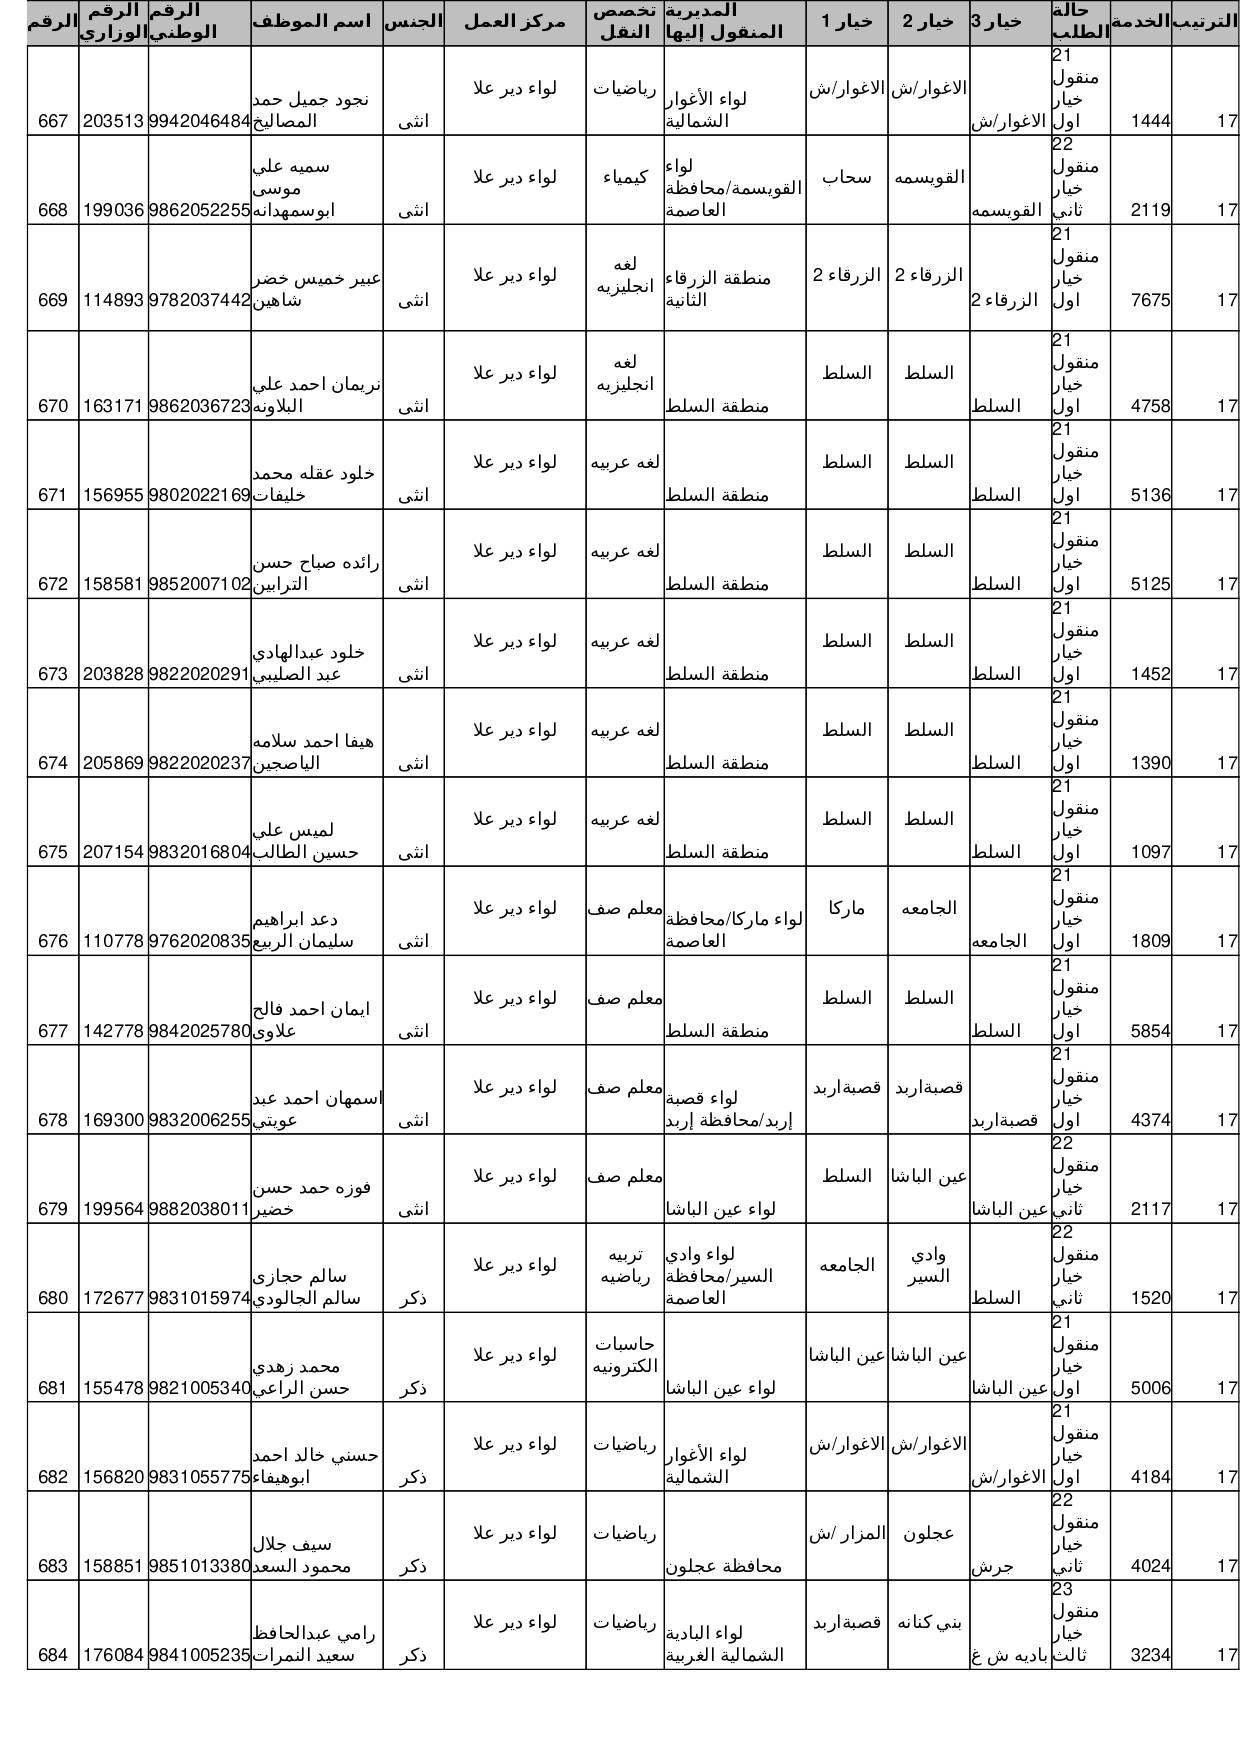 الرقم الرقم الوزاري الرقم الوطني اسم الموظف الجنس مركز العمل تخصص النقل المديرية المنقول إليها خيار 1 خيار 2 خيار 3 حالة الطلب الخدمة الترتيب
667 203513 9942046484 نجود جميل حمد المصاليخ انثى لواء دير علا رياضيات لواء الأغوار الشمالية الاغوار/ش الاغوار/ش الاغوار/ش 21 منقول خيار اول 1444 17
668 199036 9862052255 سميه علي موسى ابوسمهدانه انثى لواء دير علا كيمياء لواء القويسمة/محافظة العاصمة سحاب القويسمه القويسمه 22 منقول خيار ثاني 2119 17
669 114893 9782037442 عبير خميس خضر شاهين انثى لواء دير علا لغه انجليزيه منطقة الزرقاء الثانية الزرقاء 2 الزرقاء 2 الزرقاء 2 21 منقول خيار اول 7675 17
670 163171 9862036723 نريمان احمد علي البلاونه انثى لواء دير علا لغه انجليزيه منطقة السلط السلط السلط السلط 21 منقول خيار اول 4758 17
671 156955 9802022169 خلود عقله محمد خليفات انثى لواء دير علا لغه عربيه منطقة السلط السلط السلط السلط 21 منقول خيار اول 5136 17
672 158581 9852007102 رائده صباح حسن الترابين انثى لواء دير علا لغه عربيه منطقة السلط السلط السلط السلط 21 منقول خيار اول 5125 17
673 203828 9822020291 خلود عبدالهادي عبد الصليبي انثى لواء دير علا لغه عربيه منطقة السلط السلط السلط السلط 21 منقول خيار اول 1452 17
674 205869 9822020237 هيفا احمد سلامه الياصجين انثى لواء دير علا لغه عربيه منطقة السلط السلط السلط السلط 21 منقول خيار اول 1390 17
675 207154 9832016804 لميس علي حسين الطالب انثى لواء دير علا لغه عربيه منطقة السلط السلط السلط السلط 21 منقول خيار اول 1097 17
676 110778 9762020835 دعد ابراهيم سليمان الربيع انثى لواء دير علا معلم صف لواء ماركا/محافظة العاصمة ماركا الجامعه الجامعه 21 منقول خيار اول 1809 17
677 142778 9842025780 ايمان احمد فالح علاوى انثى لواء دير علا معلم صف منطقة السلط السلط السلط السلط 21 منقول خيار اول 5854 17
678 169300 9832006255 اسمهان احمد عبد عويتي انثى لواء دير علا معلم صف لواء قصبة إربد/محافظة إربد قصبةاربد قصبةاربد قصبةاربد 21 منقول خيار اول 4374 17
679 199564 9882038011 فوزه حمد حسن خضير انثى لواء دير علا معلم صف لواء عين الباشا السلط عين الباشا عين الباشا 22 منقول خيار ثاني 2117 17
680 172677 9831015974 سالم حجازى سالم الجالودي ذكر لواء دير علا تربيه رياضيه لواء وادي السير/محافظة العاصمة الجامعه وادي السير السلط 22 منقول خيار ثاني 1520 17
681 155478 9821005340 محمد زهدي حسن الراعي ذكر لواء دير علا حاسبات الكترونيه لواء عين الباشا عين الباشا عين الباشا عين الباشا 21 منقول خيار اول 5006 17
682 156820 9831055775 حسني خالد احمد ابوهيفاء ذكر لواء دير علا رياضيات لواء الأغوار الشمالية الاغوار/ش الاغوار/ش الاغوار/ش 21 منقول خيار اول 4184 17
683 158851 9851013380 سيف جلال محمود السعد ذكر لواء دير علا رياضيات محافظة عجلون المزار /ش عجلون جرش 22 منقول خيار ثاني 4024 17
684 176084 9841005235 رامي عبدالحافظ سعيد النمرات ذكر لواء دير علا رياضيات لواء البادية الشمالية الغربية قصبةاربد بني كنانه باديه ش غ 23 منقول خيار ثالث 3234 17